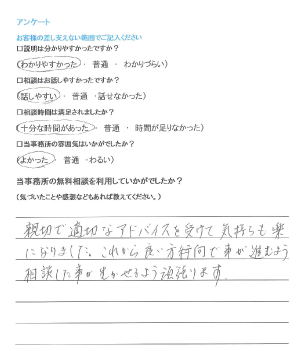 アンケート
お客様の差し支えない範囲でご記入ください
□説明は分かりやすかったですか？
（わかりやすかった ・ 普通 ・ わかりづらい）
□相談はお話しやすかったですか？
（話しやすい ・ 普通 ・話せなかった）
□相談時間は満足されましたか？
（十分な時間があった ・ 普通 ・ 時間が足りなかった）
□当事務所の雰囲気はいかがでしたか？
（よかった ・ 普通 ・わるい）
当事務所の無料相談を利用していかがでしたか？
（気づいたことや感想などもあれば教えてください。）
親切で適切なアドバイスを受けて気持ちも楽
になりました。これから良い方向で事が進むよう
相談した事が生かせるよう頑張ります。